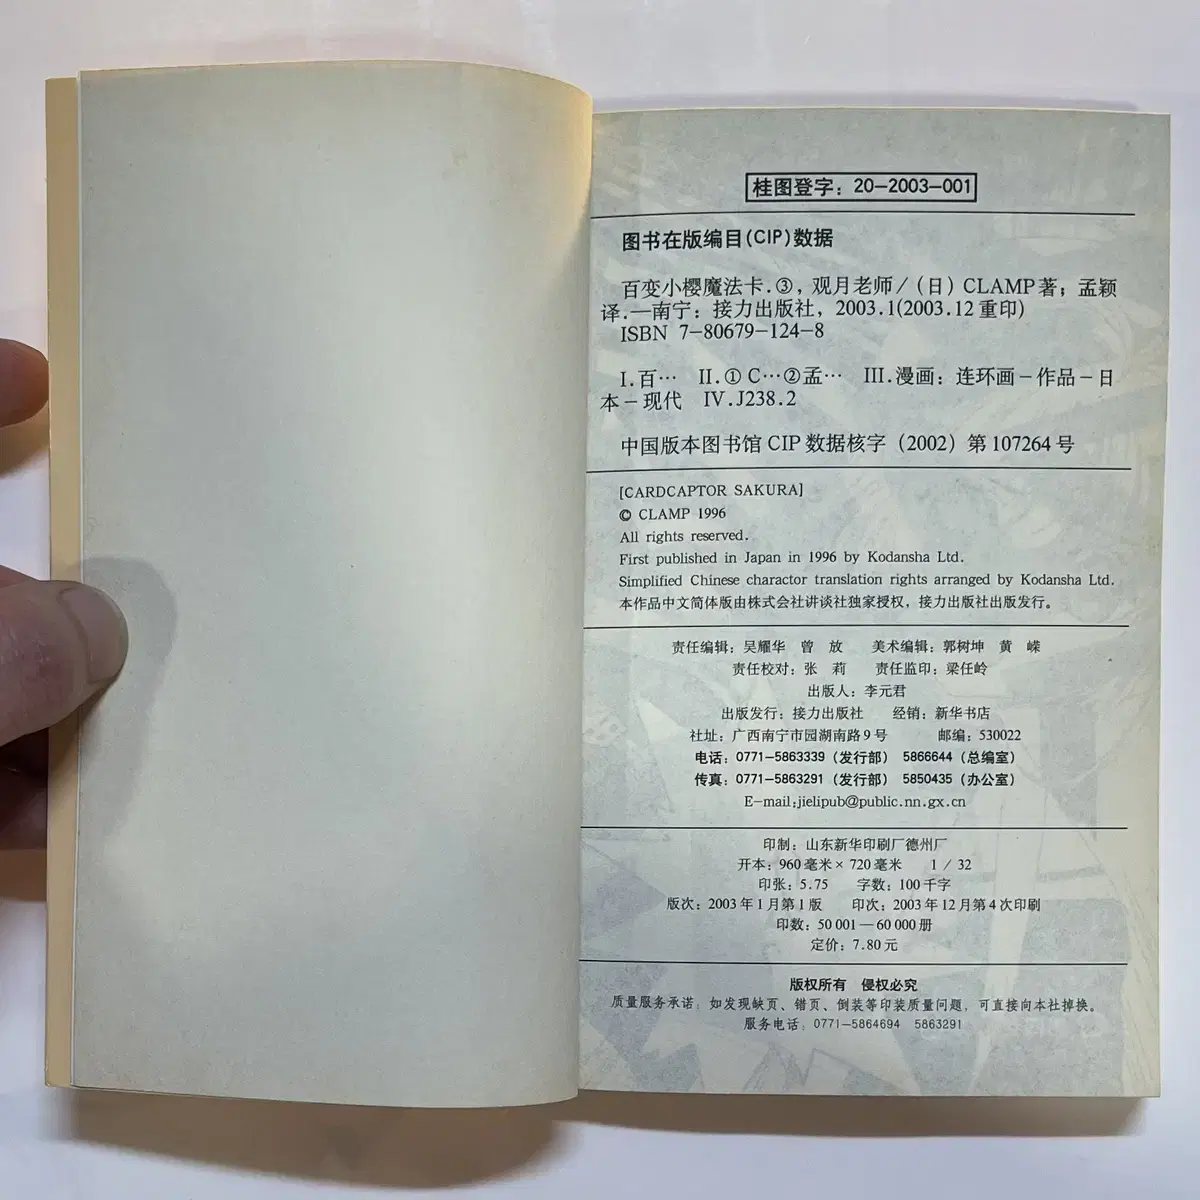 桂图登字：20-2003-001
图书在版编目(CIP)数据
百变小樱魔法卡.③，观月老师/（日）CLAMP著；孟颖
译.—南宁：接力出版社，2003.1(2003.12重印)
ISBN 7-80679-124-8
I.百… II.①C…②孟… III.漫画：连环画-作品-日
本-现代 IV.J238.2
中国版本图书馆CIP数据核字（2002）第107264号
[CARDCAPTOR SAKURA]
© CLAMP 1996
All rights reserved.
First published in Japan in 1996 by Kodansha Ltd.
Simplified Chinese charactor translation rights arranged by Kodansha Ltd.
本作品中文简体版由株式会社讲谈社独家授权，接力出版社出版发行。
责任编辑：吴耀华 曾 放 美术编辑：郭树坤 黄 嵘
责任校对：张 莉 责任监印：梁任岭
出版人：李元君
出版发行：接力出版社 经销：新华书店
社址：广西南宁市园湖南路9号 邮编：530022
电话：0771-5863339（发行部） 5866644（总编室）
传真：0771-5863291（发行部） 5850435（办公室）
E-mail:jielipub@public.nn.gx.cn
印制：山东新华印刷厂德州厂
开本：960毫米×720毫米 1/32
印张：5.75 字数：100千字
版次：2003年1月第1版 印次：2003年12月第4次印刷
印数：50 001—60 000册
定价：7.80元
版权所有 侵权必究
质量服务承诺：如发现缺页、错页、倒装等印装质量问题，可直接向本社掉换。
服务电话：0771-5864694 5863291